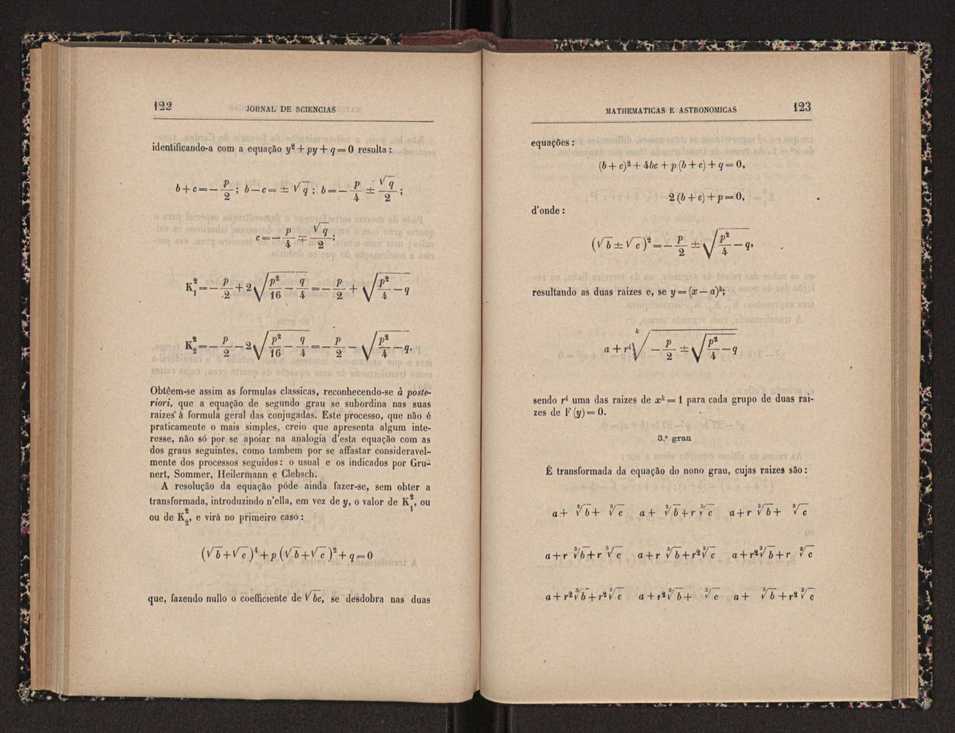 122 JORNAL DE SCIENCIAS
identificando-a com a equação y² + py + q = 0 resulta :
b + c = − p/2 ; b − c = ± √q ; b = − p/4 ± √q/2 ;
c = − p/4 ∓ √q/2 ;
K₁² = − p/2 + 2 √(p²/16 − q/4) = − p/2 + √(p²/4 − q)
K₂² = − p/2 − 2 √(p²/16 − q/4) = − p/2 − √(p²/4 − q).
Obtêem-se assim as formulas classicas, reconhecendo-se à poste-
riori, que a equação de segundo grau se subordina nas suas
raizes á formula geral das conjugadas. Este processo, que não é
praticamente o mais simples, creio que apresenta algum inte-
resse, não só por se apoiar na analogia d'esta equação com as
dos graus seguintes, como tambem por se affastar consideravel-
mente dos processos seguidos : o usual e os indicados por Gru-
nert, Sommer, Heilermann e Clebsch.
A resolução da equação póde ainda fazer-se, sem obter a
transformada, introduzindo n'ella, em vez de y, o valor de K₁², ou
ou de K₂², e virá no primeiro caso :
(√b + √c)⁴ + p (√b + √c)² + q = 0
que, fazendo nullo o coefficiente de √bc, se desdobra nas duas
MATHEMATICAS E ASTRONOMICAS 123
equações :
(b + c)² + 4bc + p (b + c) + q = 0,
2 (b + c) + p = 0,
d'onde :
(√b ± √c)² = − p/2 ± √(p²/4 − q),
resultando as duas raizes e, se y = (x − a)ᵏ;
a + rⁱ ᵏ√(− p/2 ± √(p²/4 − q))
sendo rⁱ uma das raizes de xᵏ = 1 para cada grupo de duas rai-
zes de F (y) = 0.
3.º grau
É transformada da equação do nono grau, cujas raizes são :
a + ³√b + ³√c a + ³√b + r ³√c a + r ³√b + ³√c
a + r ³√b + r ³√c a + r ³√b + r² ³√c a + r² ³√b + r ³√c
a + r² ³√b + r² ³√c a + r² ³√b + ³√c a + ³√b + r² ³√c